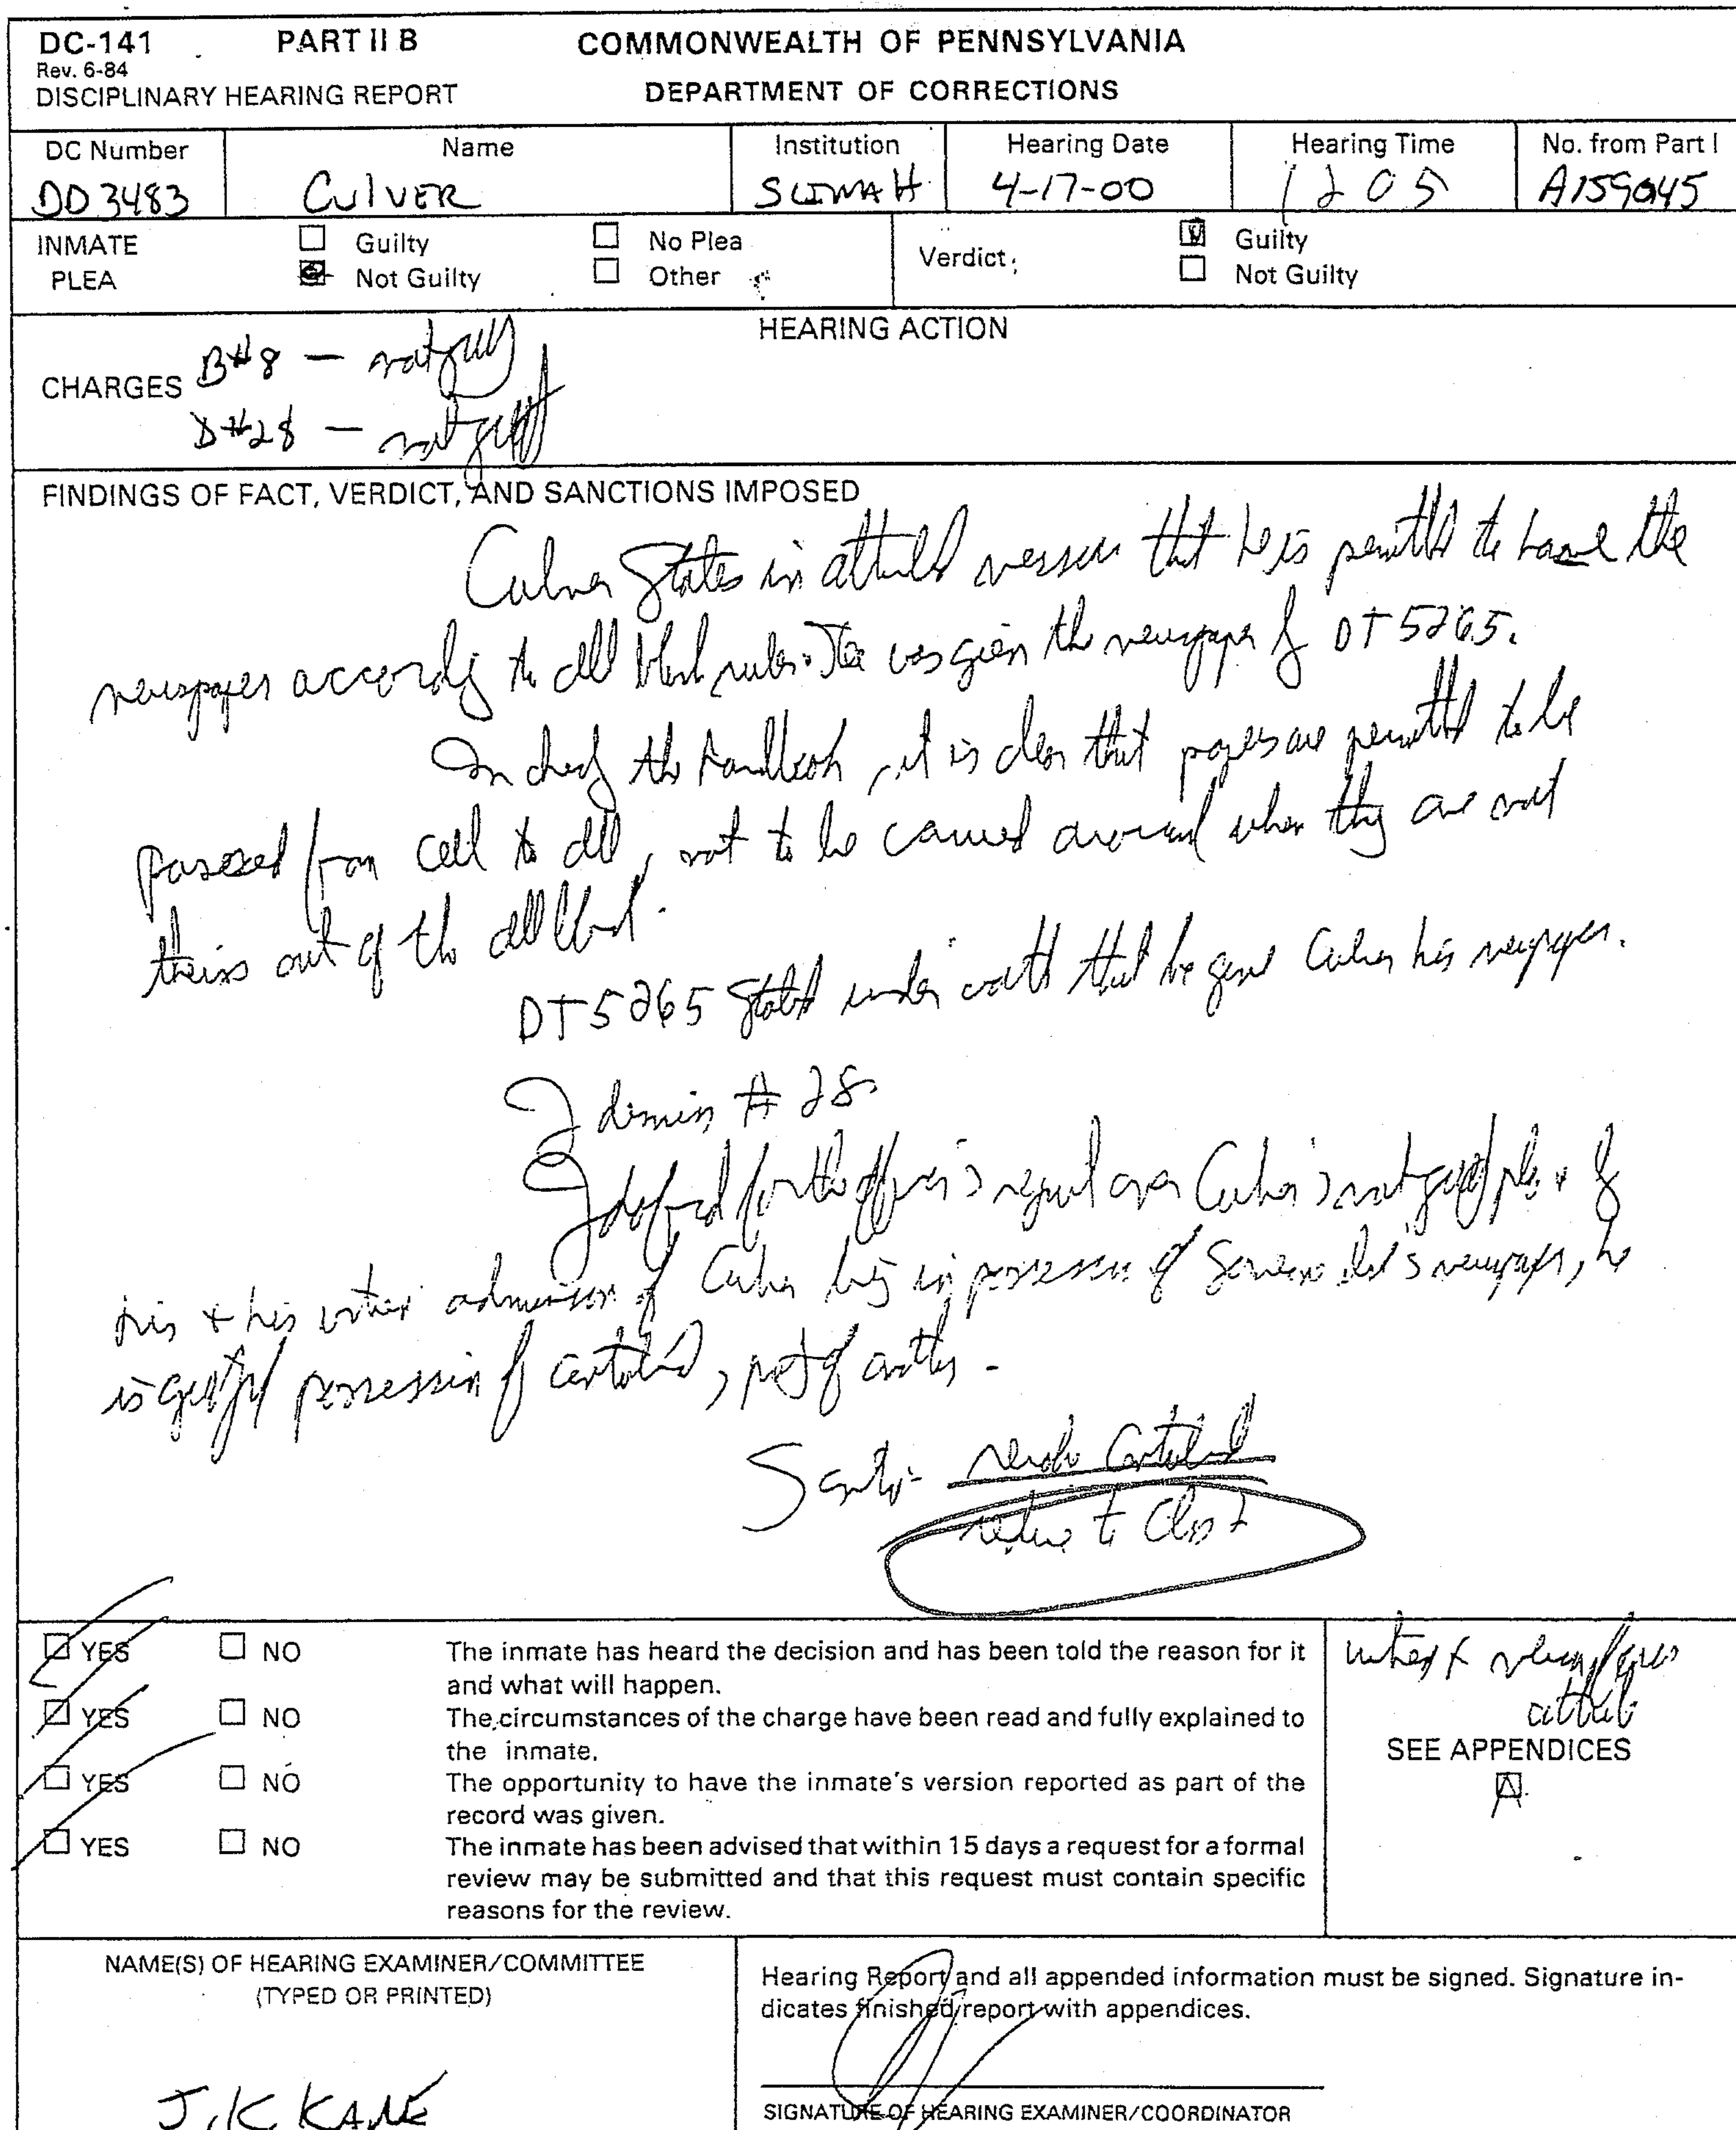 DC-141 PART II B COMMONWEALTH OF PENNSYLVANIA
Rev. 6-84
DISCIPLINARY HEARING REPORT DEPARTMENT OF CORRECTIONS
DC Number Name Institution Hearing Date Hearing Time No. from Part I
DD3483 CULVER 4-17-00 1205 A159045
INMATE Guilty No Plea Verdict: Guilty
PLEA Not Guilty Other Not Guilty
HEARING ACTION
CHARGES B#8 — not guilty
D#28 — not guilty
FINDINGS OF FACT, VERDICT, AND SANCTIONS IMPOSED
Culver States in version that he is permitted to have the
newspaper according to cell block rules. He was given the newspaper by DT5265.
the handbook, it is clear that papers are permitted to be
passed from cell to cell, not to be carried around when they are not
theirs out of the cell block.
DT5265 stated under oath that he gave Culver his newspaper.
I dismiss #28.
I for the officer's report over Culver's not guilty plea & by
his & his witness admission of Culver being in possession of newspaper, he
is guilty of possession of contraband,
contraband
to Class 2
YES NO The inmate has heard the decision and has been told the reason for it
and what will happen.
YES NO The circumstances of the charge have been read and fully explained to
the inmate.
YES NO The opportunity to have the inmate's version reported as part of the
record was given.
YES NO The inmate has been advised that within 15 days a request for a formal
review may be submitted and that this request must contain specific
reasons for the review.
SEE APPENDICES
NAME(S) OF HEARING EXAMINER/COMMITTEE
(TYPED OR PRINTED)
J. K KANE
Hearing Report and all appended information must be signed. Signature in-
dicates finished report with appendices.
SIGNATURE OF HEARING EXAMINER/COORDINATOR